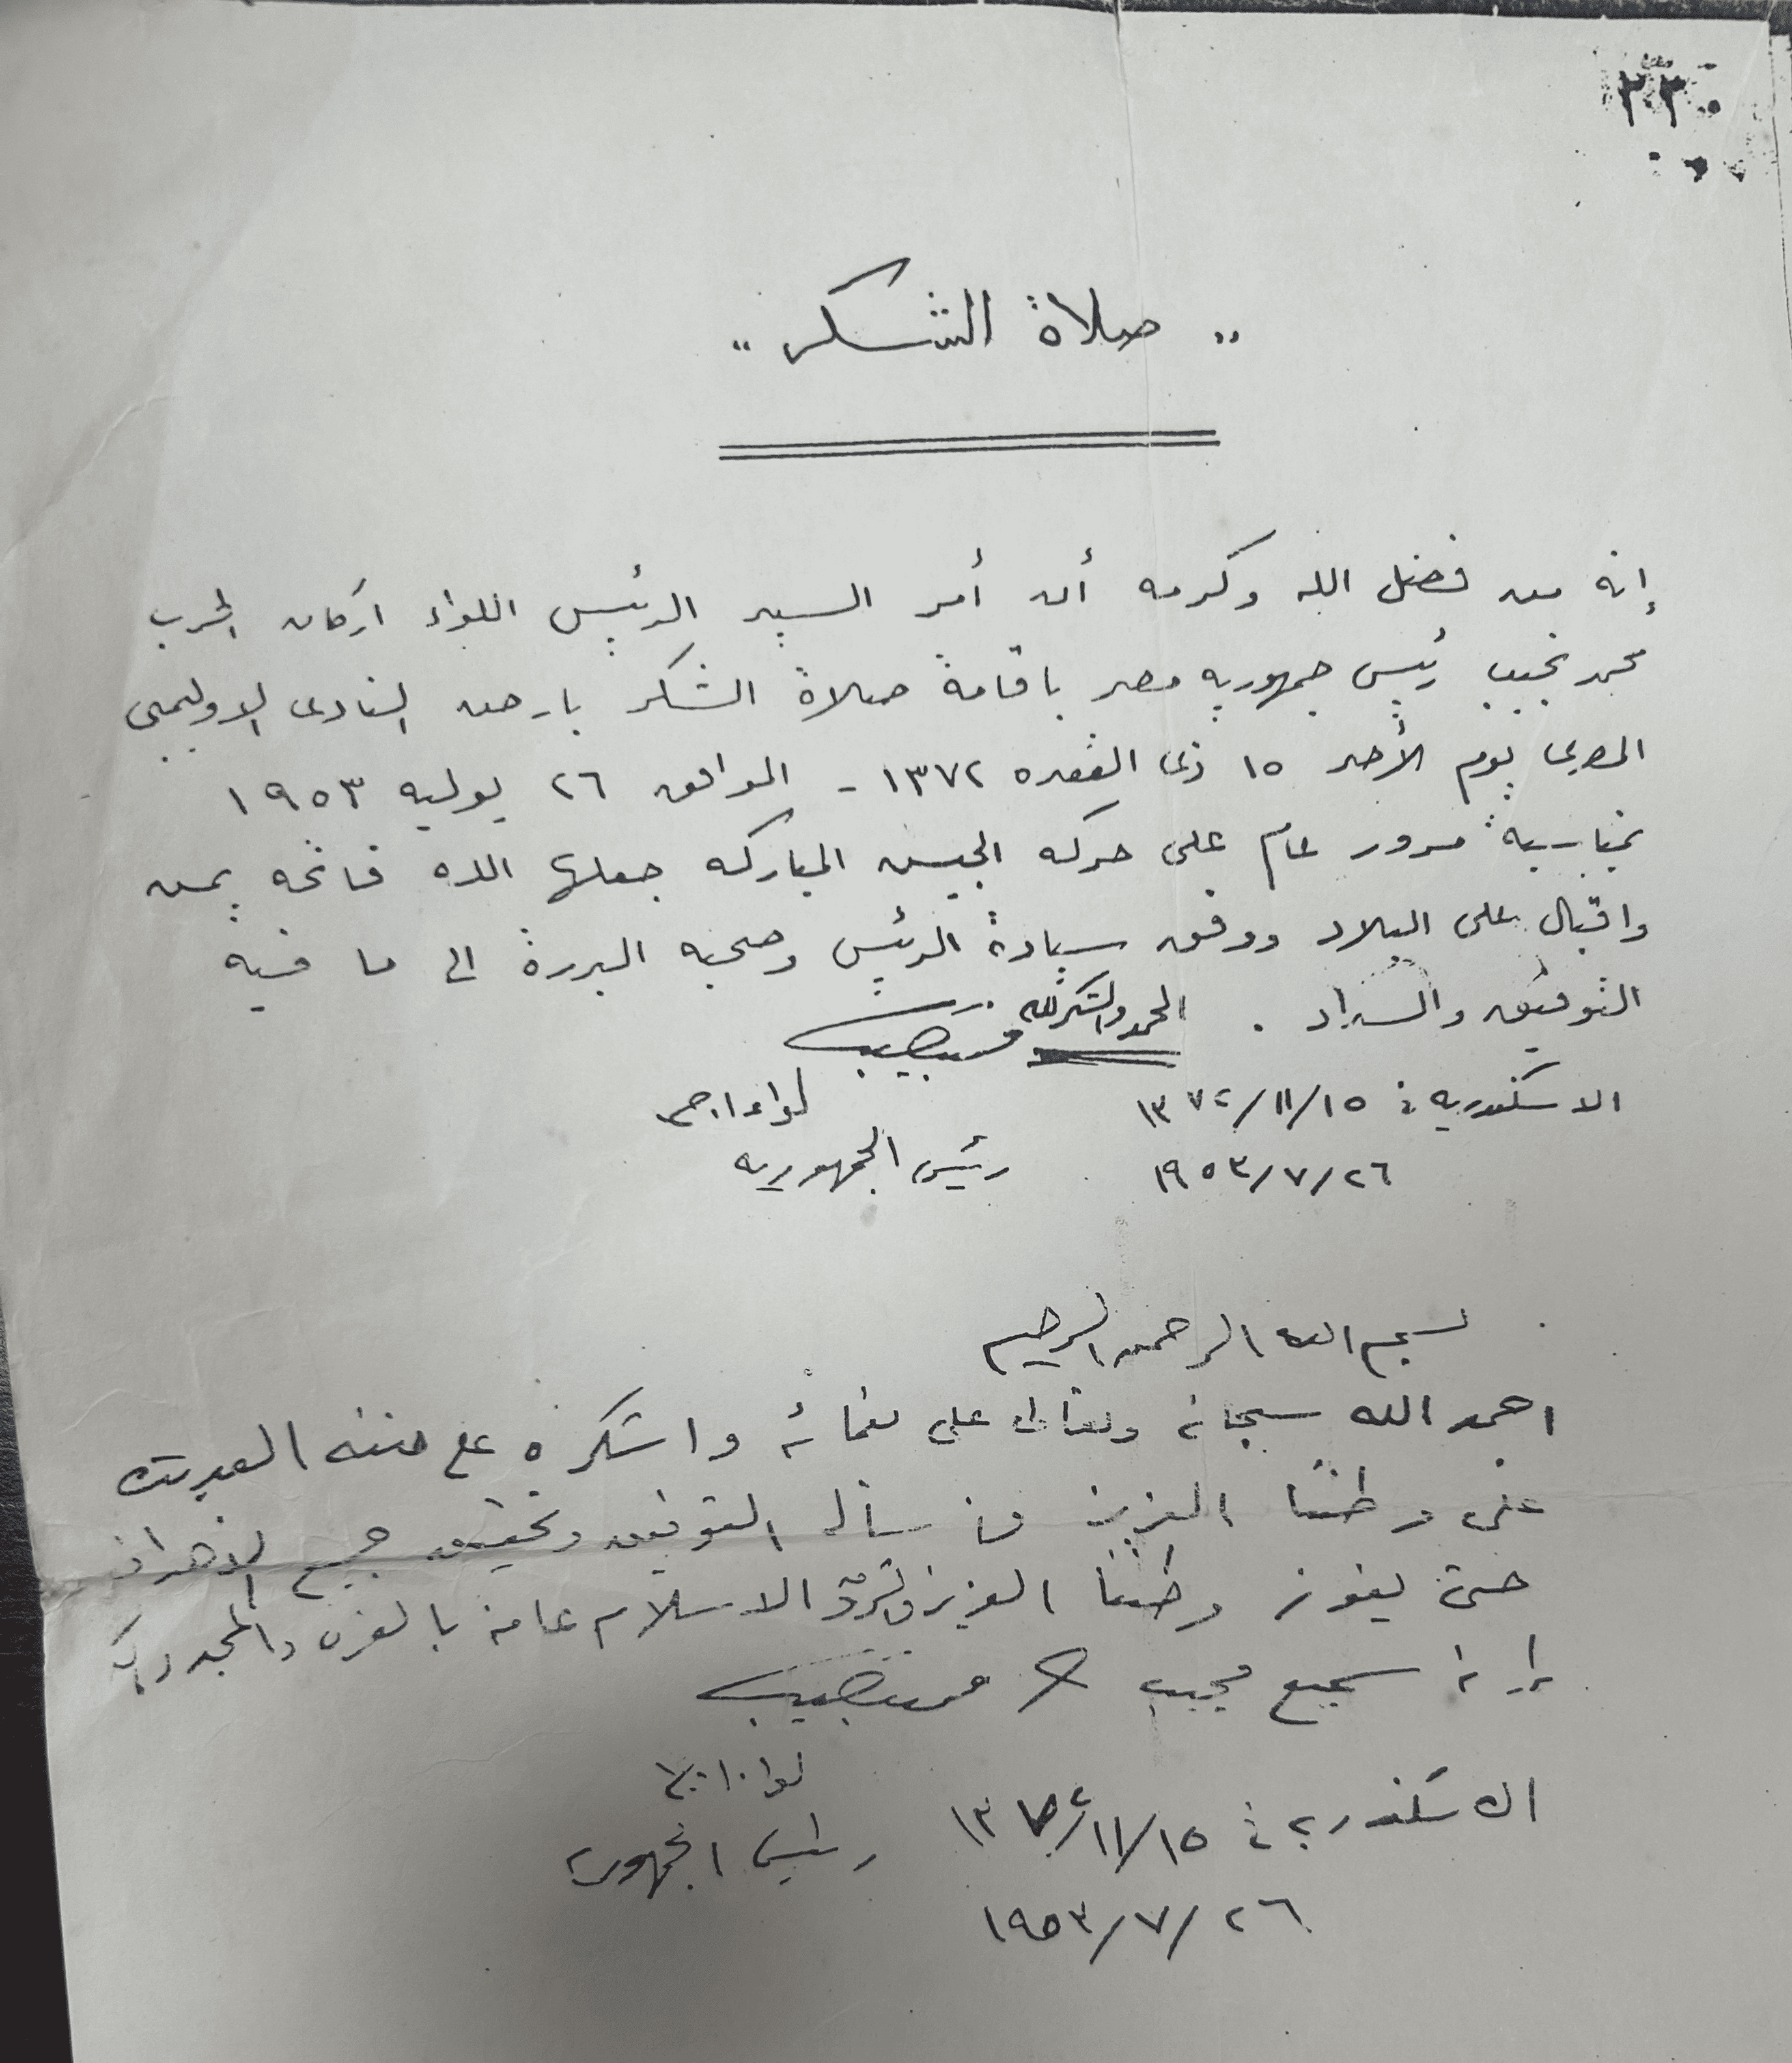 ٢٣٠
" صلاة الشكر "
إنه من فضل الله وكرمه أن أمر السيد الرئيس اللواء اركان الحرب
محمد نجيب رئيس جمهوريه مصر باقامة صلاة الشكر بارض النادى الاوليمبى
المصرى يوم الأحد ١٥ ذى القعده ١٣٧٢ - الموافق ٢٦ يوليه ١٩٥٣
بمناسبة مرور عام على حركه الجيش المباركه جعلها الله فاتحه يمن
واقبال على البلاد ووفق سيادة الرئيس وصحبه البررة الى ما فيه
التوفيق والسداد . الحمد والشكر لله
محمد نجيب
الاسكندريه فى ١٥/١١/١٣٧٢ لواء ا.ح
٢٦/٧/١٩٥٣ رئيس الجمهوريه
بسم الله الرحمن الرحيم
احمد الله سبحانه وتعالى على نعمائه واشكره على مننه العديدة
على وطننا العزيز التوفيق وتحقيق جميع الاهداف
حتى يفوز وطننا العزيز والشرق الاسلام عامة بالعز والمجد
إنه سميع مجيب محمد نجيب
لواء ا.ح
الاسكندرية فى ١٥/١١/١٣٧٢ رئيس الجمهورية
٢٦/٧/١٩٥٣